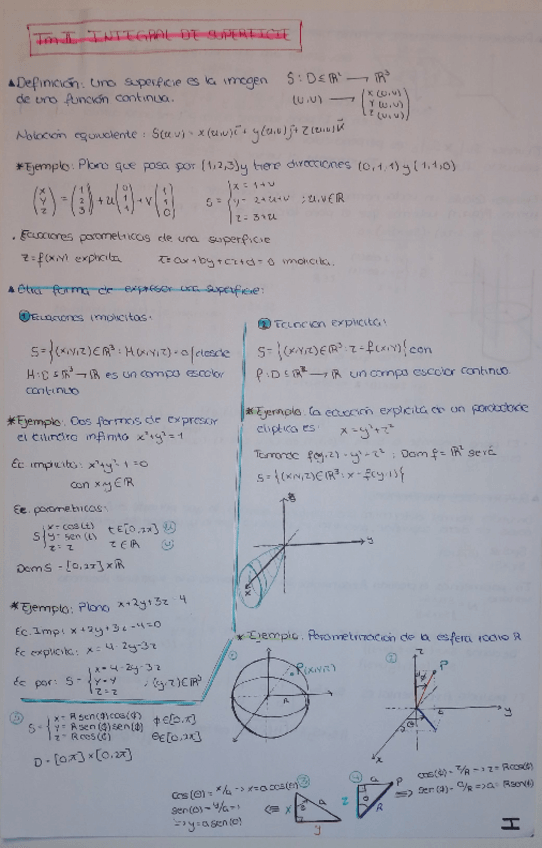 Tm II INTEGRAL DE SUPERFICIE
▲Definición: Una superficie es la imagen
de una función continua.
S: D ⊆ ℝ² → ℝ³
(u,v) → (x(u,v) y(u,v) z(u,v))
Notación equivalente: S(u,v) = x(u,v)i + y(u,v)j + z(u,v)k
*Ejemplo: Plano que pasa por (1,2,3) y tiene direcciones (0,1,1) y (1,1,0)
(x y z) = (1 2 3) + u(0 1 1) + v(1 1 0)
S = { x = 1+v
y = 2+u+v ; u,v ∈ ℝ
z = 3+u
. Ecuaciones parametricas de una superficie
z = f(x,y) explicita
= ax+by+cz+d = 0 implicita.
▲ Otra forma de expresar una superficie:
① Ecuaciones implicitas:
S = {(x,y,z) ∈ ℝ³ : H(x,y,z) = 0 / desde
H: D ⊆ ℝ³ → ℝ es un campo escalar
continuo
*Ejemplo: Dos formas de expresar
el cilindro infinito x²+y²=1
Ec implicita: x²+y²-1=0
con x,y ∈ ℝ
Ec. parametricas:
S { x = cos(t) t ∈ [0,2π] (u)
y = sen(t)
z = z z ∈ ℝ (v)
Dom S = [0,2π] × ℝ
*Ejemplo: Plano x+2y+3z = 4
Ec. Imp: x+2y+3z-4=0
Ec explicita: x = 4-2y-3z
Ec par: S = { x = 4-2y-3z
y = y ; (y,z) ∈ ℝ²
z = z
② Función explicita:
S = {(x,y,z) ∈ ℝ³ : z = f(x,y)} con
f: D ⊆ ℝ² → ℝ un campo escalar continuo.
*Ejemplo: La ecuación explicita de un paraboloide
eliptica es: x = y²+z²
Tomando f(y,z) = y²-z² ; Dom f = ℝ² será
S = {(x,y,z) ∈ ℝ³ : x = f(y,z)}
y
x
*Ejemplo: Parametrización de la esfera radio R
①
P(x,y,z)
R
②
z
P
y
x
θ
⑤
S = { x = R sen(ϕ) cos(ϕ) ϕ ∈ [0,π]
y = R sen(ϕ) sen(ϕ)
z = R cos(ϕ) θ ∈ [0,2π]
D = [0,π] × [0,2π]
cos(θ) = x/a → x = a cos(θ)
sen(θ) = y/a =
⇒ y = a sen(θ)
③
x
a
y
④
a
P
z
R
cos(ϕ) = z/R → z = R cos(ϕ)
⇒ sen(ϕ) = a/R → a = R sen(ϕ)
I